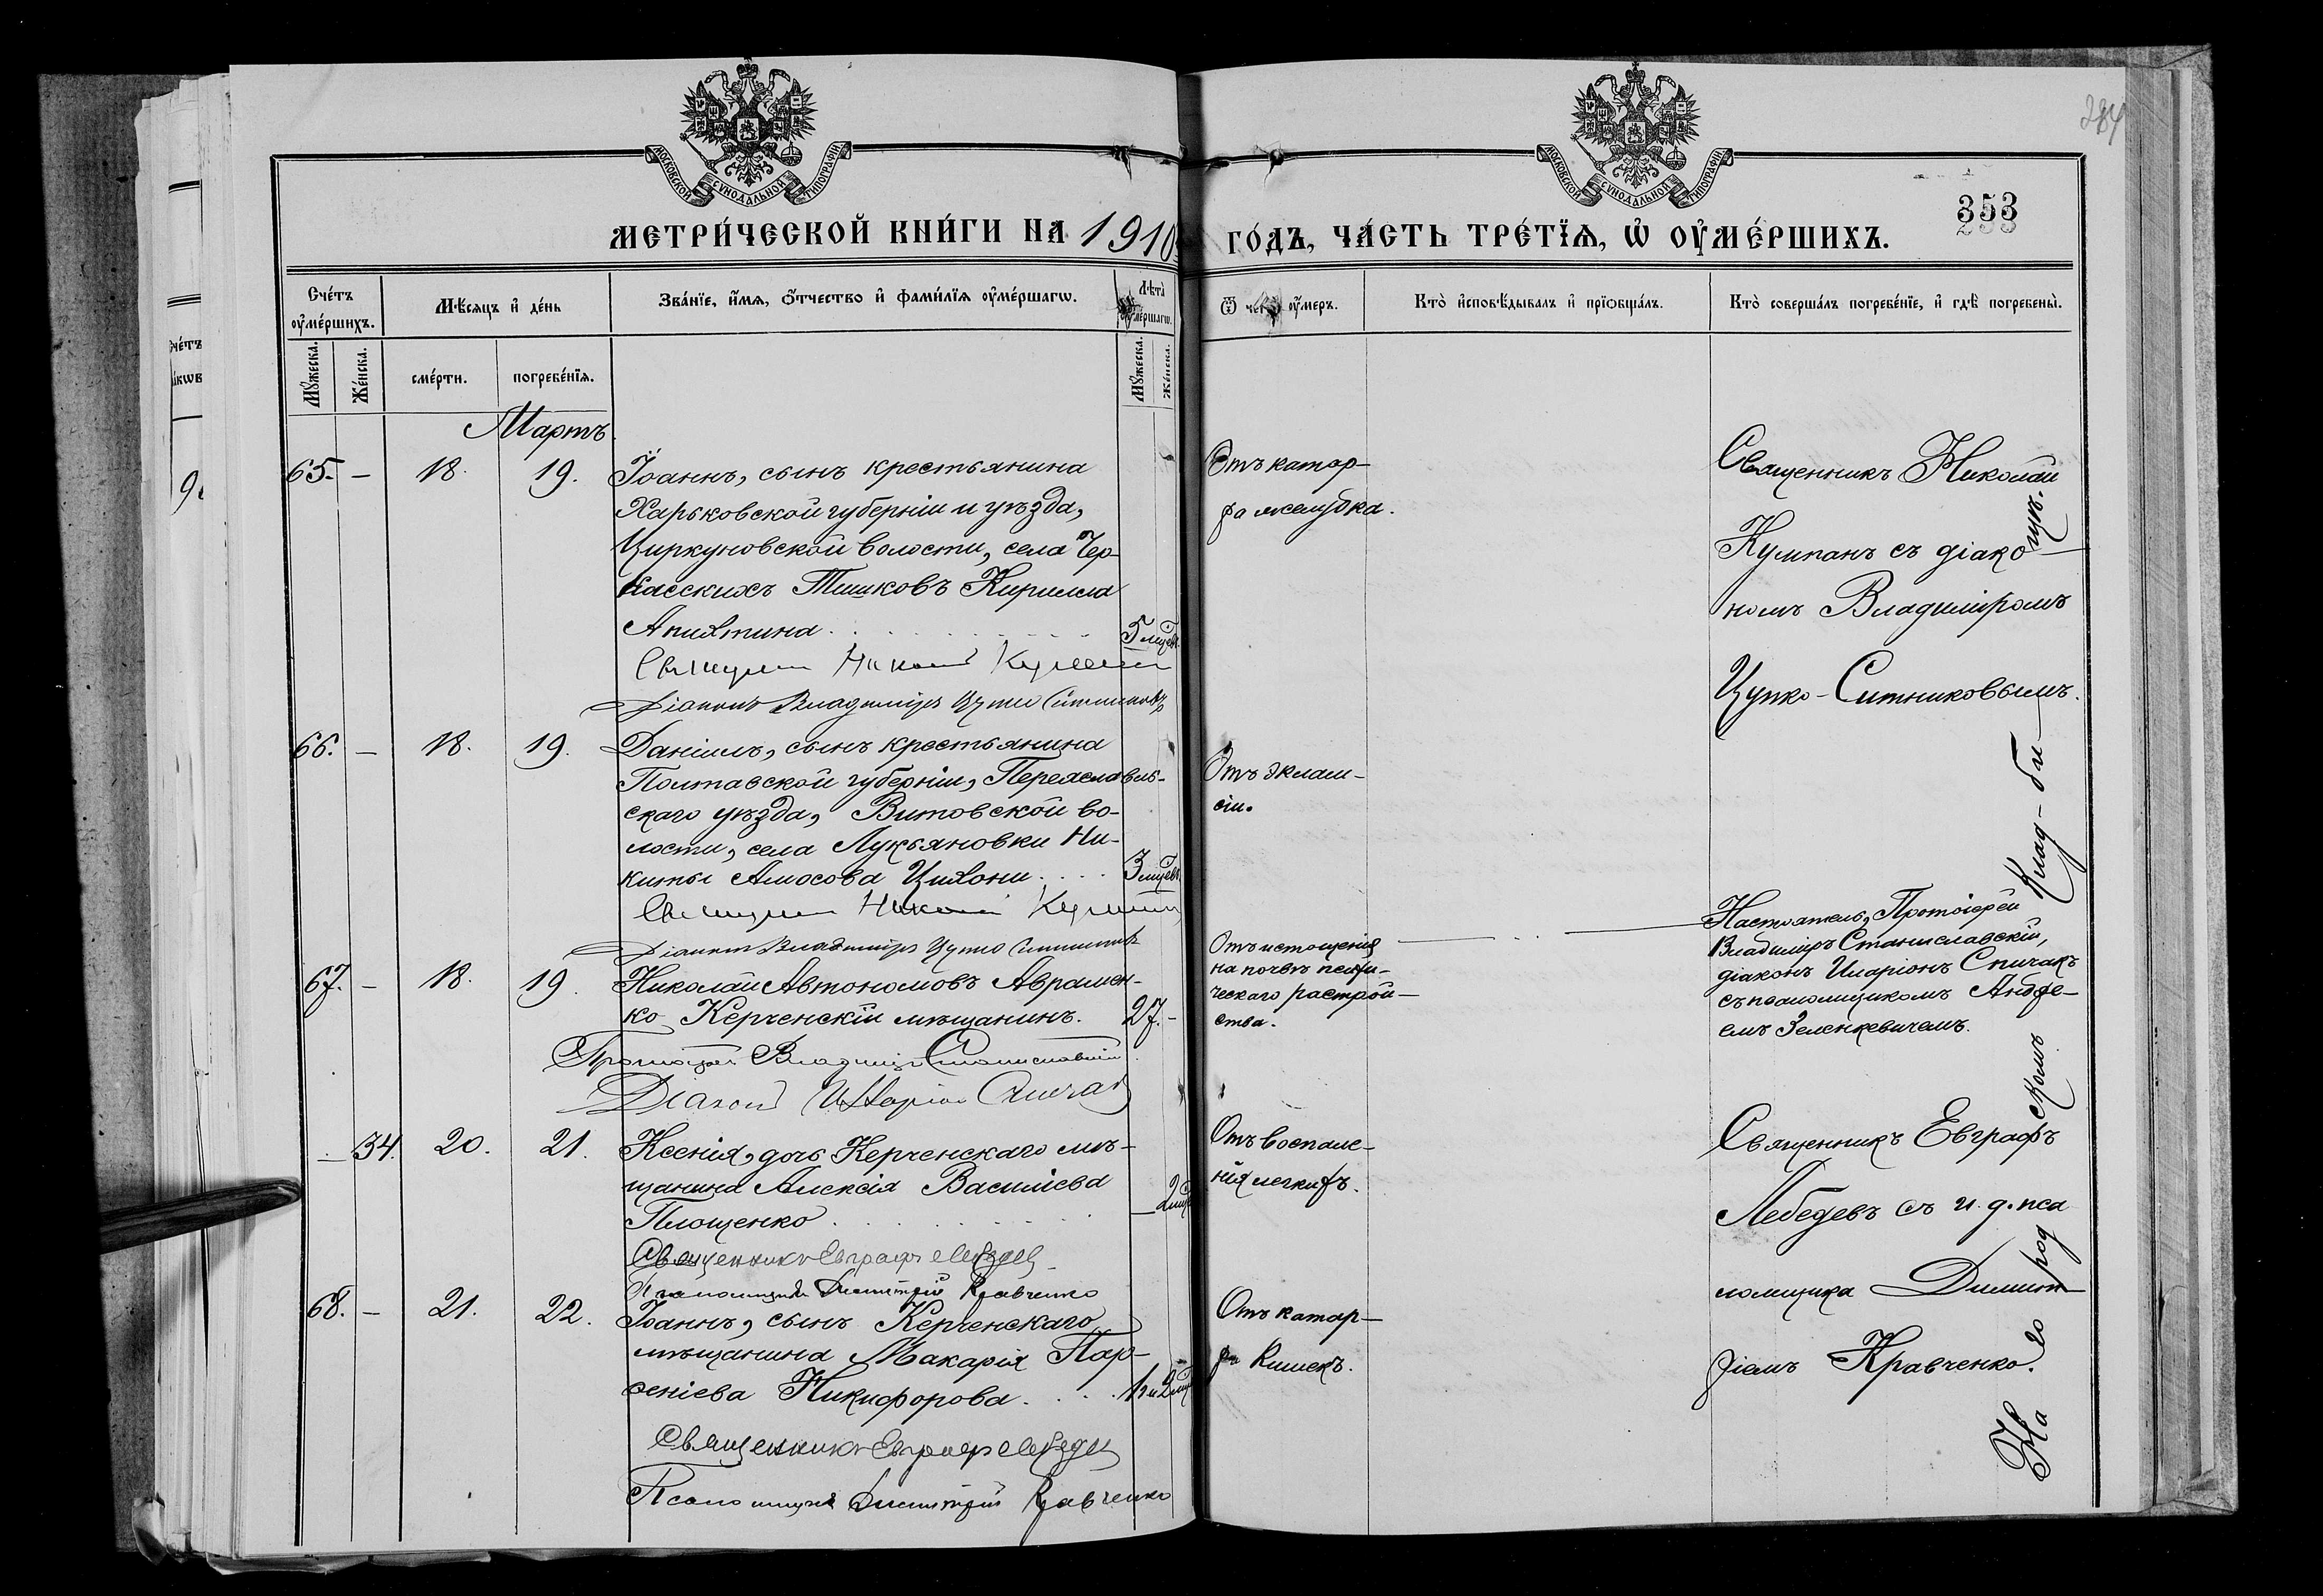 284
МОСКОВСКОЙ СѴНОДАЛЬНОЙ ТИПОГРАФІИ
МОСКОВСКОЙ СѴНОДАЛЬНОЙ ТИПОГРАФІИ
353
МЕТРИ́ЧЕСКОЙ КНИ́ГИ НА 1910
ГО́ДЪ, ЧА́СТЬ ТРЕ́ТЇѦ, Ѽ ОУ҆МЕ́РШИХЪ.
Сче́тъ оу҆ме́ршихъ.
Мѣ́сяцъ и҆ де́нь
Зва́нїе, и҆́мѧ, ѻ҆́тчество и҆ фами́лїѧ оу҆ме́ршагѡ.
Лѣта̀ оу҆ме́ршагѡ.
Ѿ чегѡ̀ оу҆́меръ.
Кто̀ и҆сповѣ́дывалъ и҆ прїѡбща́лъ.
Кто̀ соверша́лъ погребе́нїе, и҆ гдѣ̀ погребены̀.
Мꙋ́жеска.
Же́нска.
сме́рти.
погребе́нїѧ.
Мꙋ́жеска.
Же́нска.
Мартъ
65. — 18. 19. Іоаннъ, сынъ крестьянина
Харьковской губерніи и уѣзда,
Циркуновской волости, села Чер-
касскихъ Тишковъ Кирилла
Апихтина. 5 мцев.
Діаконъ Владиміръ Цупко Ситниковъ
Отъ катар-
ра желудка.
Священникъ Николай
Кумпанъ съ діако-
номъ Владиміромъ
Цупко-Ситниковымъ.
66. — 18. 19. Даніилъ, сынъ крестьянина
Полтавской губерніи, Переяславль-
скаго уѣзда, Витовской во-
лости, села Лукьяновки Ни-
киты Амосова 3 мцев.
Діаконъ Владиміръ Цупко Ситниковъ
Отъ эклам-
сіи.
67. — 18. 19. Николай Автономовъ Аврамен-
ко Керченскій мѣщанинъ. 27. –
Протоіерей Владиміръ Станиславскій
Діаконъ Иларіонъ Спичакъ
Отъ истощенія
на почвѣ психи-
ческаго растрой-
ства.
Настоятель, Протоіерей
Владиміръ Станиславскій,
діаконъ Иларіонъ Спичакъ
съ псаломщикомъ Андре-
емъ Зеленкевичемъ.
— 34. 20. 21. Ксенія, дочь Керченскаго мѣ-
щанина Алексія Василіева
Площенко
Священникъ Евграфъ Лебедев
Псаломщикъ Димитрій Кравченко
Отъ воспале-
нія легкихъ.
Священникъ Евграфъ
Лебедевъ съ и. д. пса
ломщика Димит
ріемъ Кравченко.
68. — 21. 22. Іоаннъ, сынъ Керченскаго
мѣщанина Макарія Пар-
ѳеніева Никифорова
Священникъ Евграфъ Лебедев
Псаломщикъ Димитрій Кравченко
Отъ катар-
ра кишекъ.
На городскомъ клад-би-щѣ.